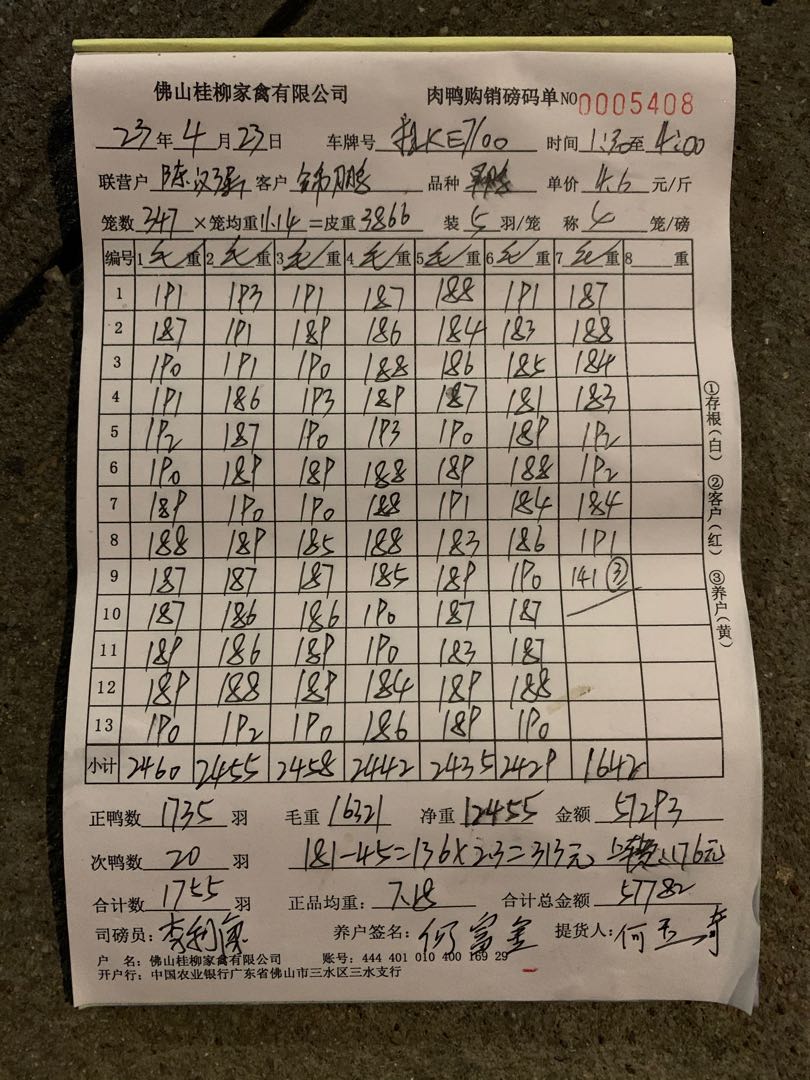 佛山桂柳家禽有限公司 肉鸭购销磅码单 NO 0005408
23年4月23日 车牌号 桂KE7100 时间 1:30至4:00
联营户 陈汉强 客户 品种 单价 4.6 元/斤
笼数 347 ×笼均重 11.14 =皮重 3866 装 5 羽/笼 称 4 笼/磅
编号 1 毛 重 2 毛 重 3 毛 重 4 毛 重 5 毛 重 6 毛 重 7 毛 重 8 重
1 191 193 191 187 188 191 187
2 187 191 189 186 184 183 188
3 190 191 190 188 186 185 184
4 191 186 193 189 187 181 183
5 192 187 190 193 190 189 192
6 190 189 189 188 189 188 192
7 189 190 190 188 191 184 184
8 188 189 185 188 183 186 191
9 187 187 187 185 189 190 141 ③
10 187 186 186 190 187 187
11 189 186 189 190 183 187
12 189 188 189 184 189 188
13 190 192 190 186 189 190
小计 2460 2455 2458 2442 2435 2429 1642
正鸭数 1735 羽 毛重 16321 净重 12455 金额 57293
次鸭数 20 羽 181-45=136×2.3=313元 上车费:176元
合计数 1755 羽 正品均重: 7.18 合计总金额 57782
司磅员: 养户签名: 何富金 提货人:
户 名: 佛山桂柳家禽有限公司 账号: 444 401 010 400 169 29
开户行: 中国农业银行广东省佛山市三水区三水支行
①存根(白) ②客户(红) ③养户(黄)